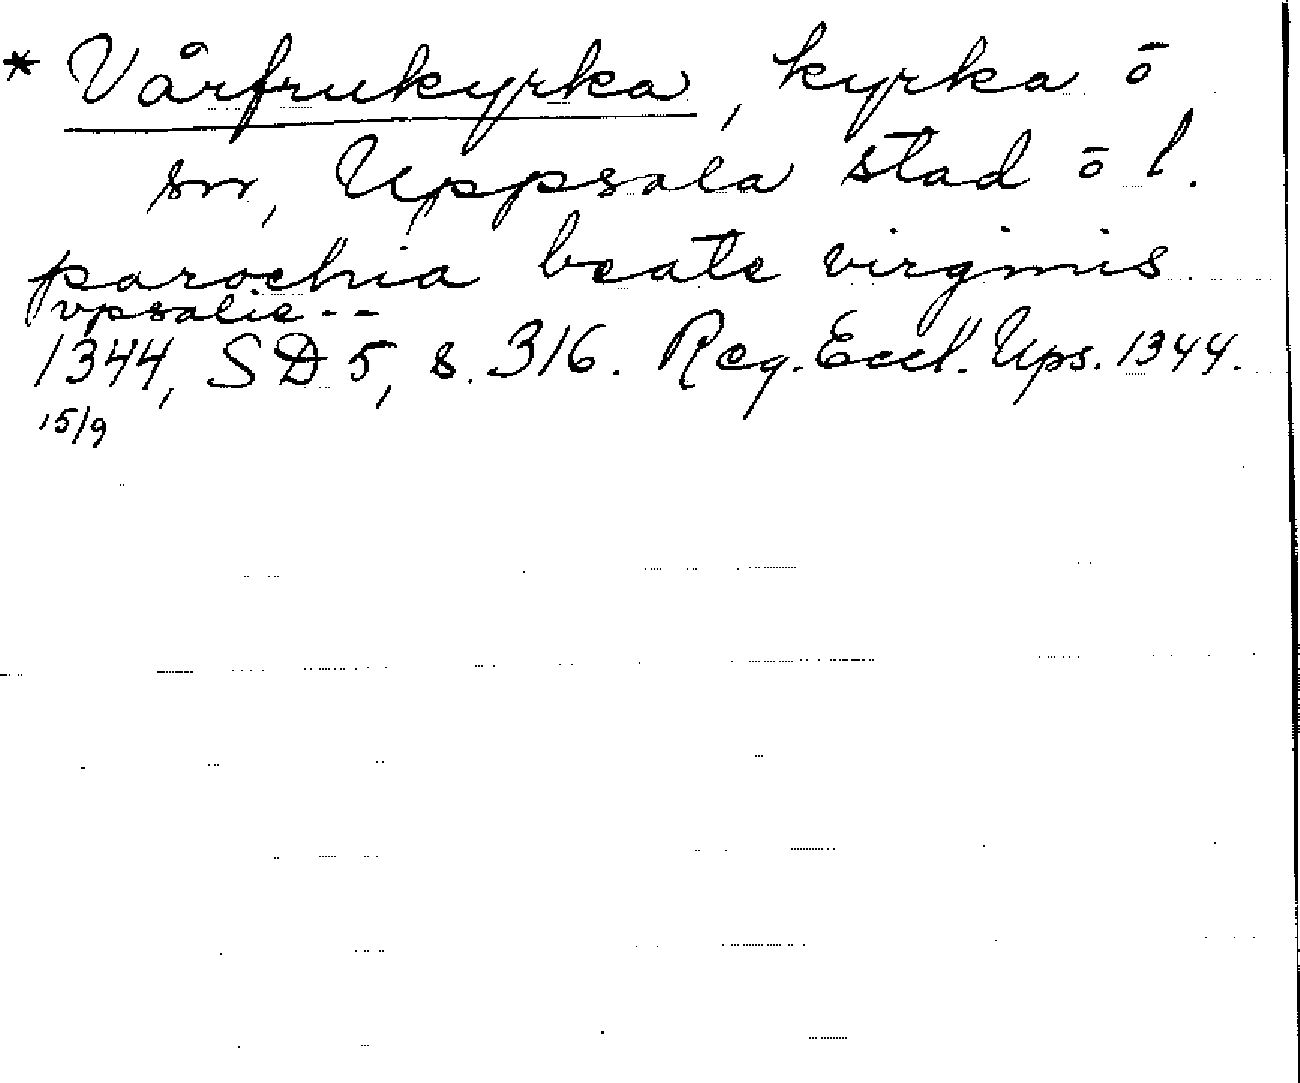 * Vårfrukyrka, kyrka ō
sn, Uppsala stad ō l.
parochia beate virginis
vpsalie--
1344, SD 5, s. 316. Reg. Eccl. Ups. 1344.
15/9